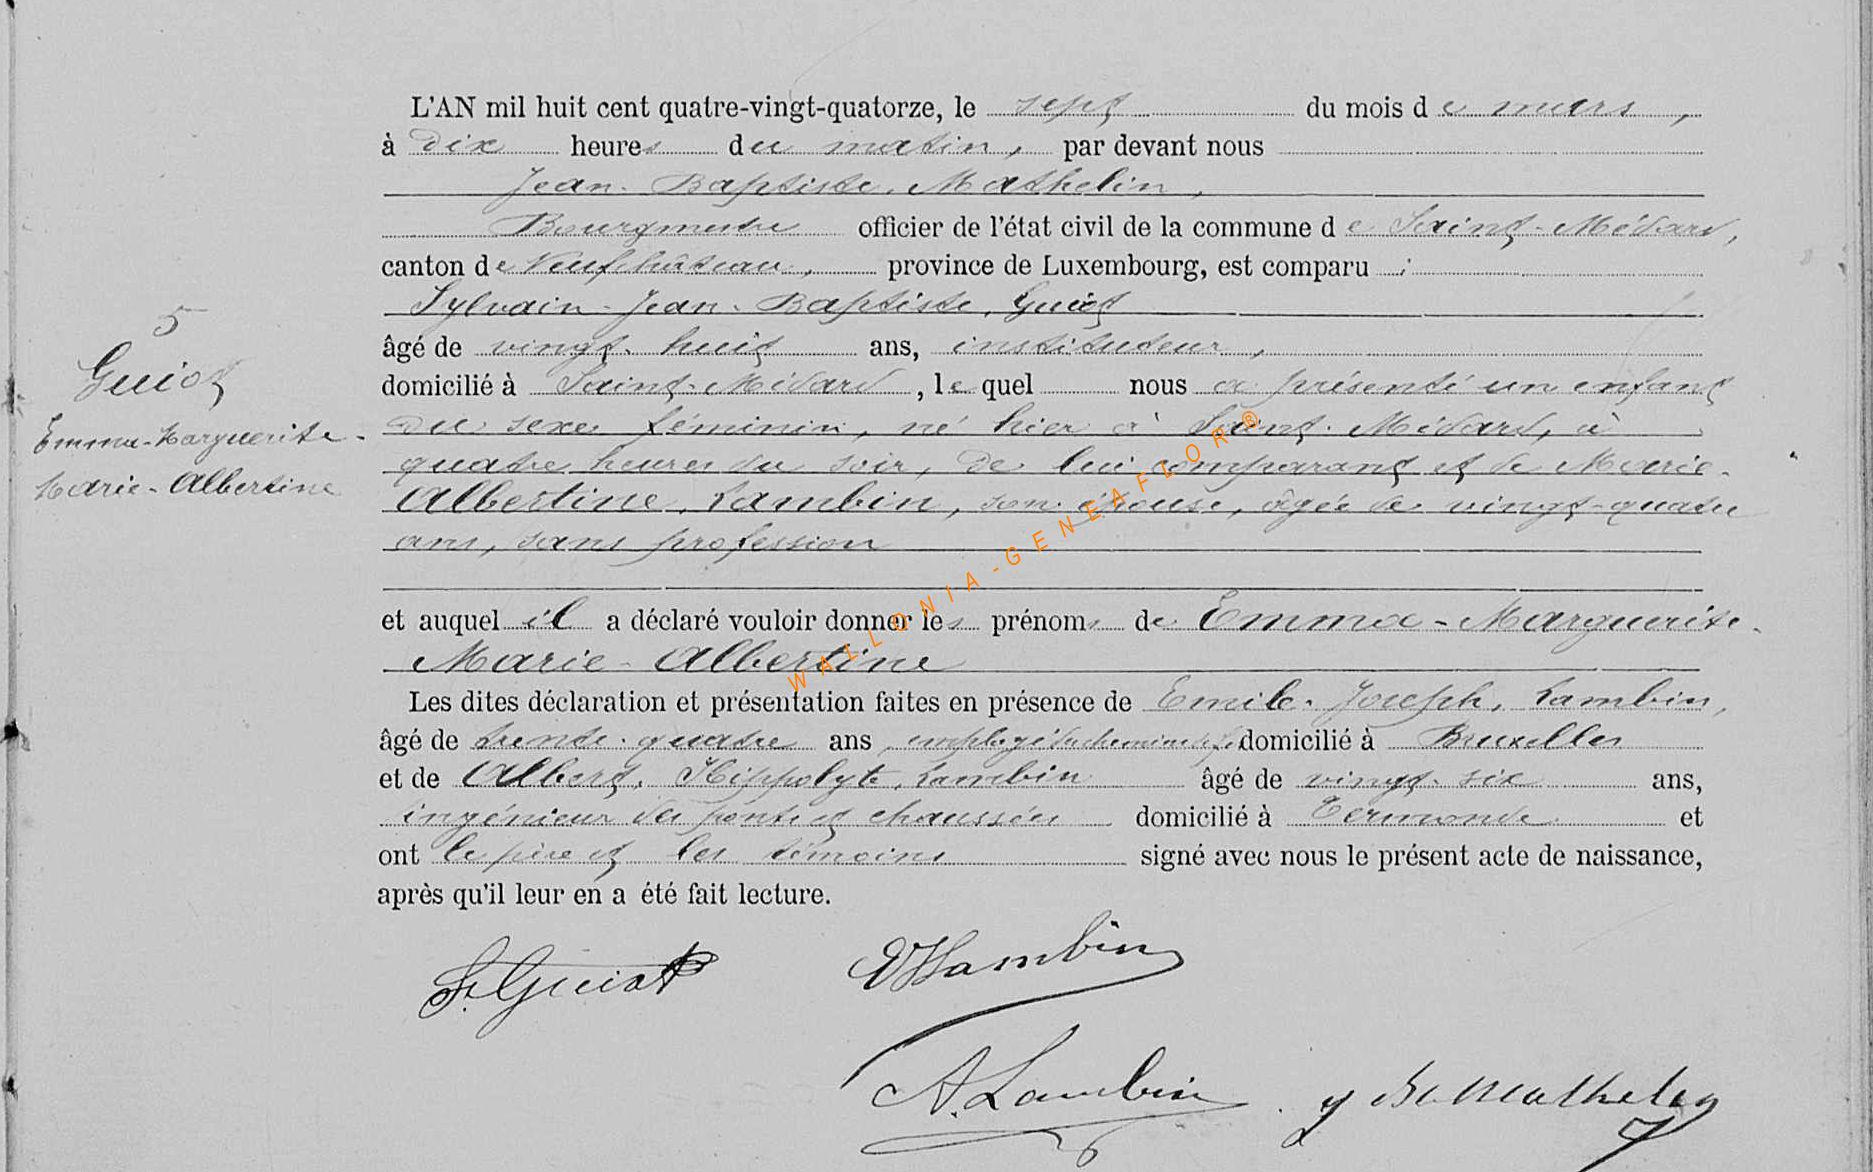 L'AN mil huit cent quatre-vingt-quatorze, le sept du mois de mars,
à dix heures du matin, par devant nous
Jean-Baptiste Mathelin,
Bourgmestre officier de l'état civil de la commune de Saint-Médard,
canton de Neufchâteau, province de Luxembourg, est comparu :
Sylvain-Jean-Baptiste Guiot
âgé de vingt-huit ans, instituteur,
domicilié à Saint-Médard, lequel nous a présenté un enfant
du sexe féminin, né hier à Saint-Médard, à
quatre heures du soir, de lui comparant et de Marie-
Albertine Lambin, son épouse, âgée de vingt-quatre
ans, sans profession
et auquel il a déclaré vouloir donner les prénoms de Emma-Marguerite-
Marie-Albertine
Les dites déclaration et présentation faites en présence de Emile-Joseph Lambin,
âgé de trente-quatre ans, employé du chemin de fer, domicilié à Bruxelles
et de Albert-Hippolyte Lambin âgé de vingt-six ans,
ingénieur des ponts et chaussées domicilié à Termonde et
ont le père et les témoins signé avec nous le présent acte de naissance,
après qu'il leur en a été fait lecture.
5
Guiot
Emma-Marguerite-
Marie-Albertine
S. Guiot
EJLambin
A. Lambin
J Bte Mathelin
WALLONIA-GENEAFLOR®